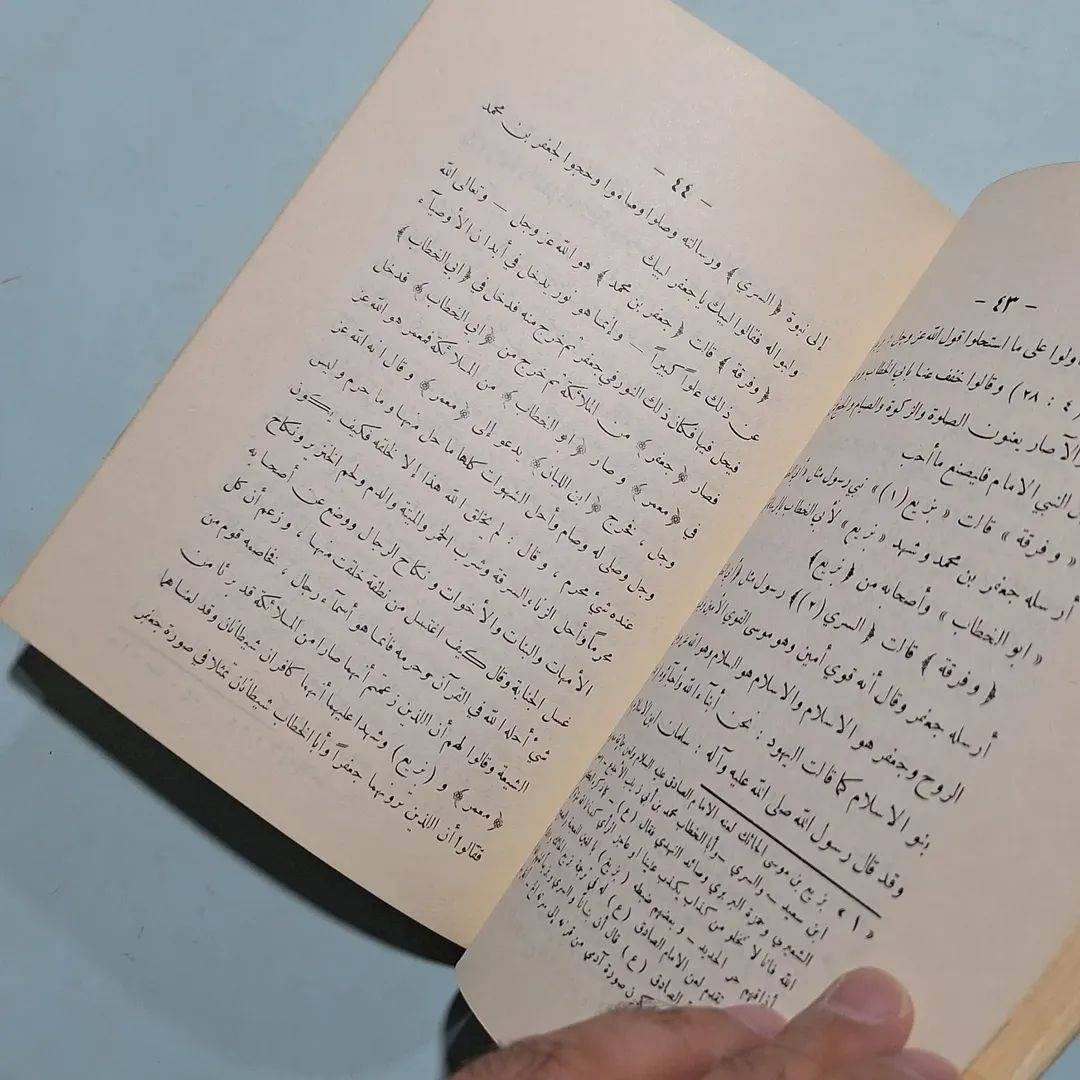 - ٤٣ -
اولوا على ما استحلوا قول الله عز وجل :
٤ : ٢٨) وقالوا خفف عنا بأبي الخطاب
والآصار يعنون الصلوة والزكوة والصيام والحج
النبي الامام فليصنع ما أحب
« وفرقة » قالت « بزيع (١)» نبي رسول مثل
أرسله جعفر بن محمد وشهد « بزيع » لأبي الخطاب
« ابو الخطاب » وأصحابه من ﴿ بزيع﴾
﴿ وفرقة ﴾ قالت ﴿ السري (٢)﴾ رسول مثل
أرسله جعفر وقال أنه قوي أمين وهو موسى القوي الأمين
الروح وجعفر هو الاسلام والاسلام هو السلام وهو الله
بنو الاسلام كما قالت اليهود : نحن أبناء الله وأحباؤه
وقد قال رسول الله صلى الله عليه وآله : سلمان ابن
« ١ » بزيع بن موسى الحائك لعنه الامام الصادق عليه السلام
ابن سعيد - والسري - وأبا الخطاب محمد بن أبي زينب الأجدع
الشعيري وحمزة البربري وصائد النهدي فقال (ع) -
الله فانا لا نخلو من كذاب يكذب علينا او عاجز الرأي كفانا الله
أذاقهم حر الحديد - و بعضهم ضبطه ( بزيغ )
تقدم لعن الامام الصادق (ع) له في ترجمة بزيع
الصادق (ع) قال أن بنانا والسري
صورة آدمي من قرنه إلى سرته
- ٤٤ -
إلى نبوة ﴿ السري ﴾ ورسالته وصلوا وصاموا وحجوا لجعفر بن محمد
وابواله فقالوا لبيك يا جعفر لبيك
﴿ وفرقة ﴾ قالت ﴿ جعفر بن محمد ﴾ هو الله عز وجل - وتعالى الله
عن ذلك علواً كبيراً - وإنما هو نور يدخل في أبدان الأوصياء
فيحل فيها فكان ذلك النور في جعفر ثم خرج منه فدخل في ﴿ ابي الخطاب ﴾
فصار ﴿ جعفر ﴾ من الملائكة ثم خرج من ﴿ ابي الخطاب ﴾ فدخل
في ﴿ معمر ﴾ وصار ﴿ ابو الخطاب ﴾ من الملائكة فمعمر هو الله عز
وجل ، فخرج ﴿ ابن اللبان ﴾ يدعو إلى ﴿ معمر ﴾ وقال انه الله عز
وجل وصلى له وصام وأحل الشهوات كلها ما حل منها وما حرم وليس
عنده شيء محرم ، وقال : لم يخلق الله هذا إلا لخلقه فكيف يكون
محرماً وأحل الزناء السرقة وشرب الخمر والميتة والدم ولحم الخنزير ونكاح
الأمهات والبنات والأخوات ونكاح الرجال ووضع عن أصحابه
غسل الجنابة وقال كيف اغتسل من نطفة خلقت منها ، وزعم أن كل
شيء أحله الله في القرآن وحرمه فانما هو أسماء رجال ، فخاصمه قوم من
الشيعة وقالوا لهم أن اللذين زعمتم أنهما صارا من الملائكة قد برئا من
﴿ معمر ﴾ و (بزيع) وشهدا عليهما أنهما كافران شيطانان وقد لعناهما
فقالوا أن اللذين ترونهما جعفراً وأبا الخطاب شيطانان تمثلا في صورة جعفر